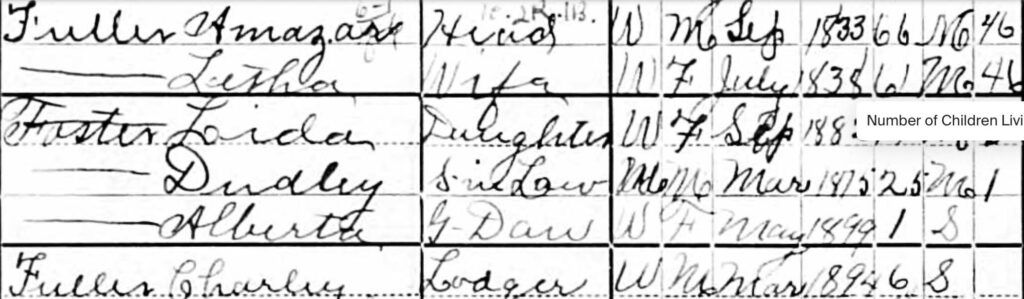 Fuller Amazar Head W M Sep 1833 66 M 46
Letha Wife W F July 1838 61 M 46
Foster Loida Daughter W F Sep 188
Number of Children Livi
Dudley S-in Law W M Mar 1875 25 M 1
Alberta G-Daw W F May 1899 1 S
Fuller Charley Lodger W M Mar 1894 6 S